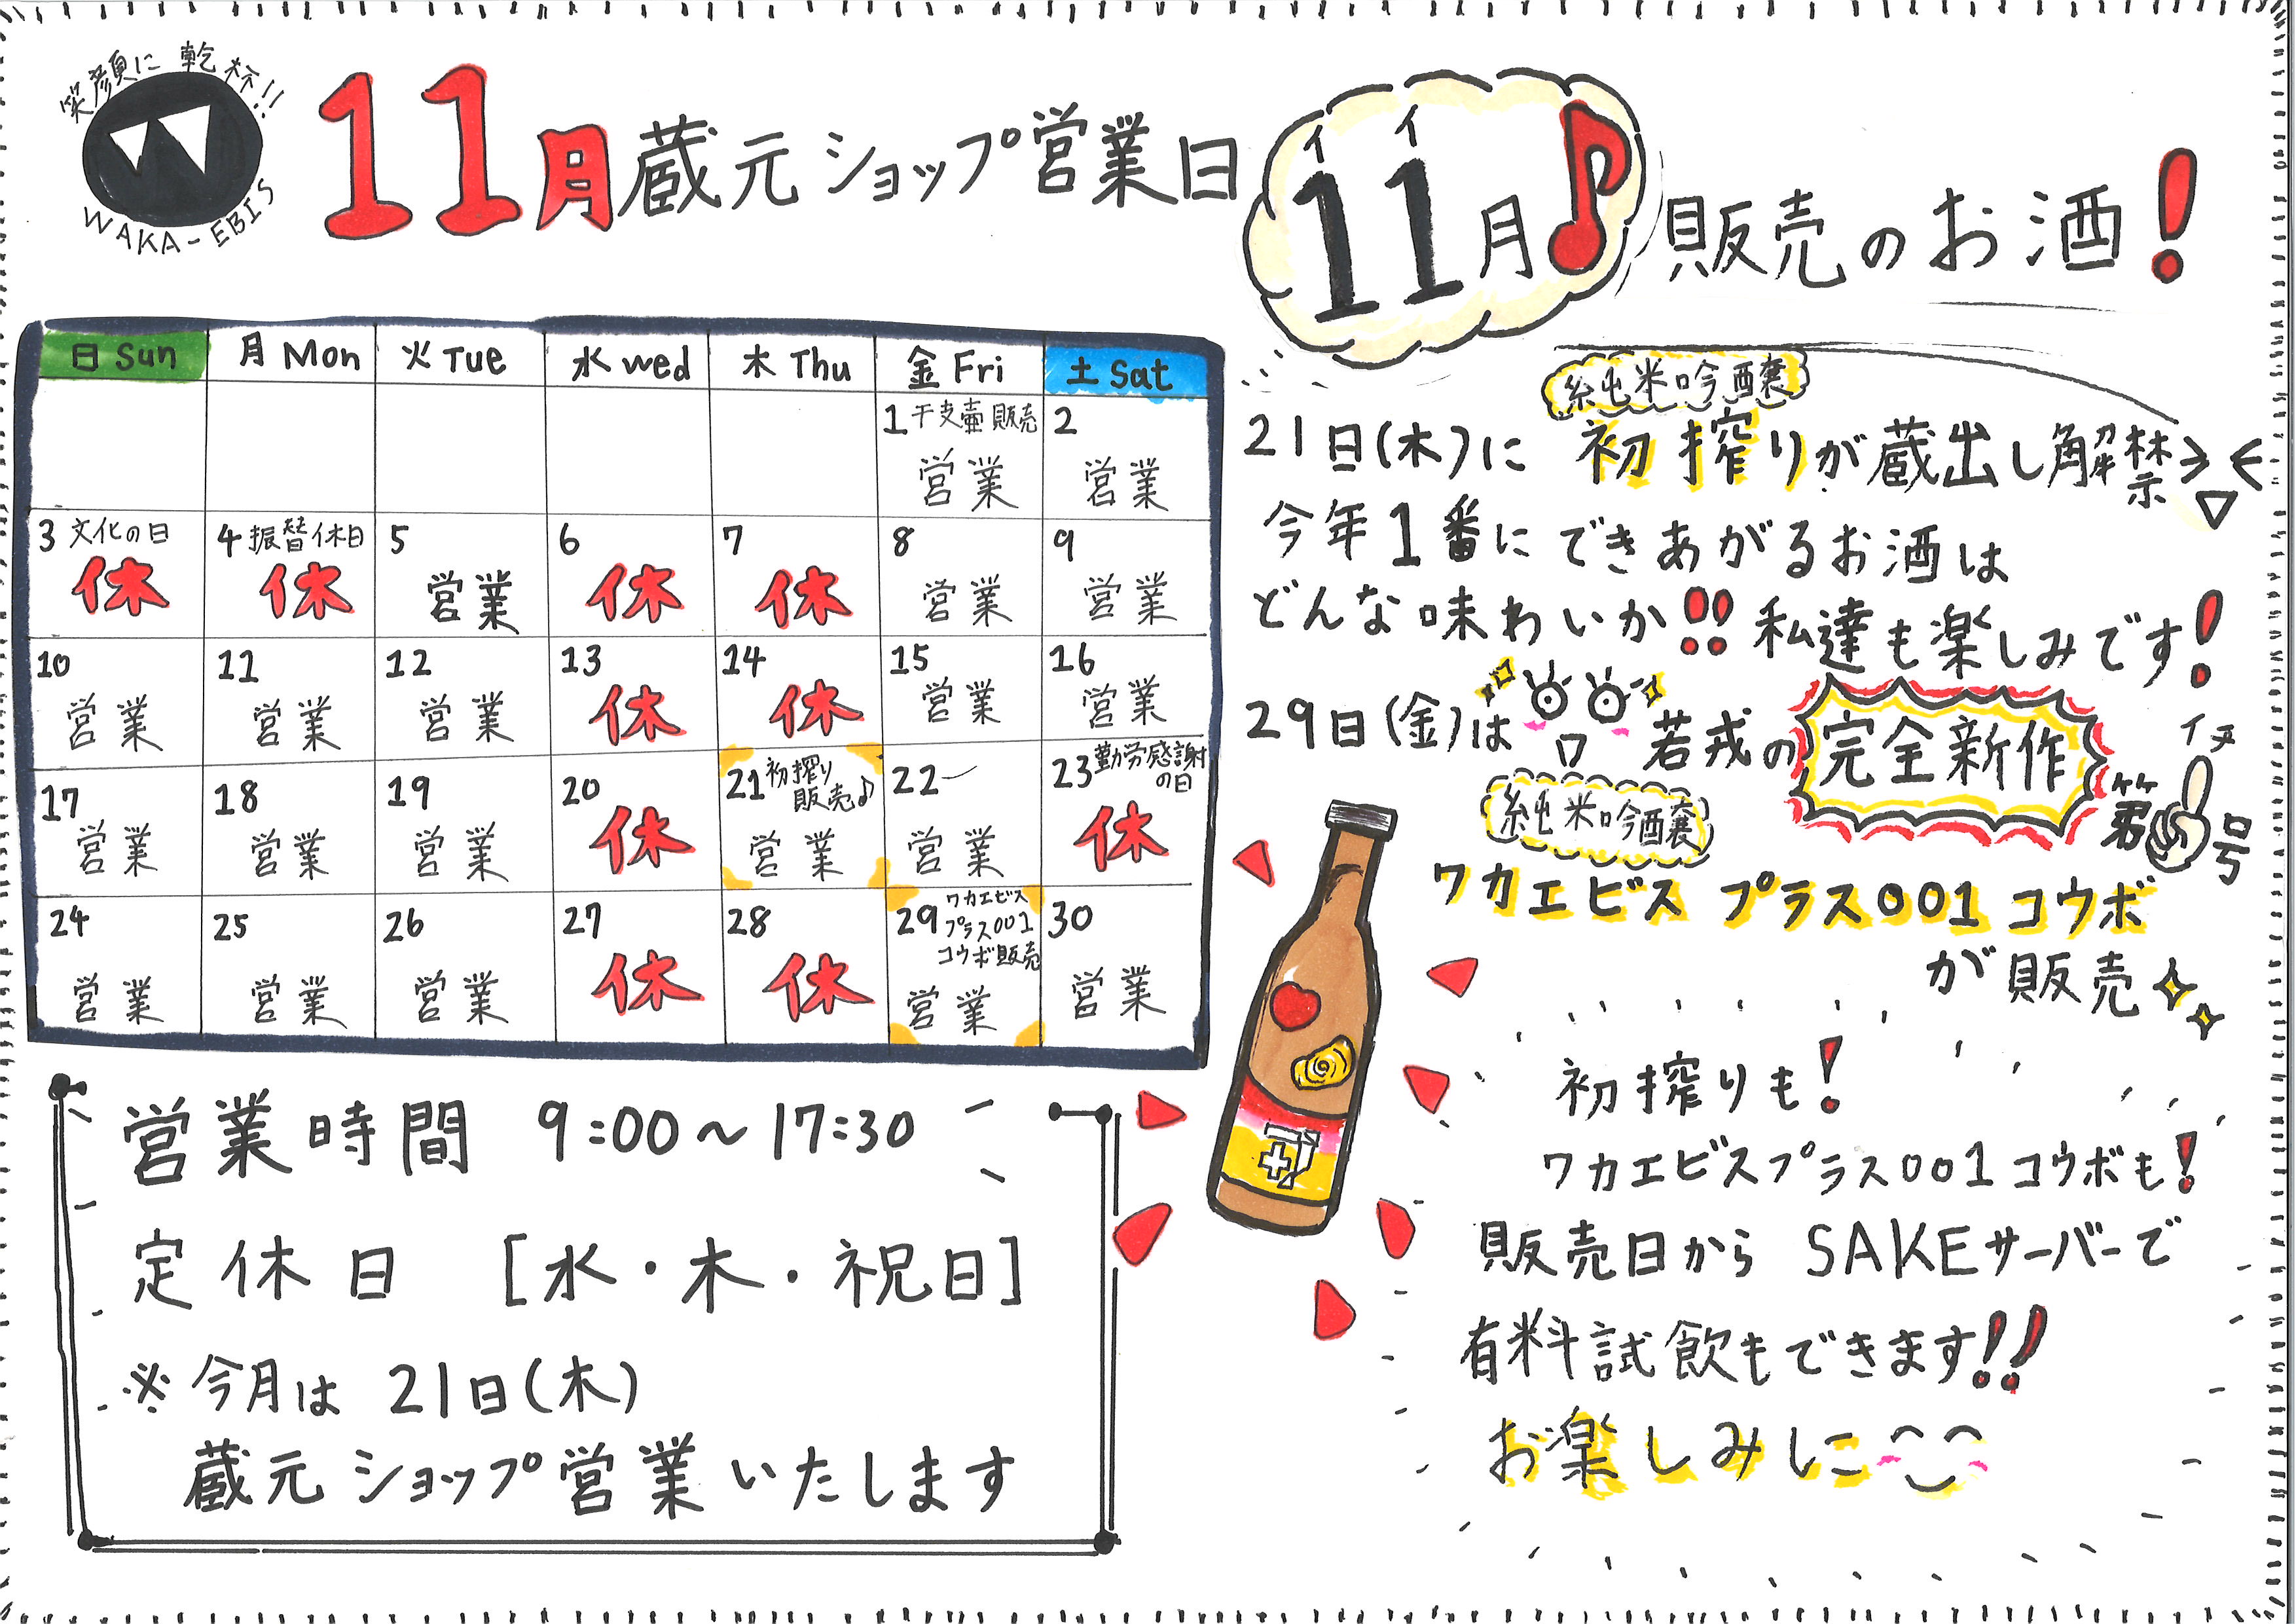 笑顔に乾杯!!
W
WAKA-EBIS
11月蔵元ショップ営業日
日Sun 月Mon 火Tue 水Wed 木Thu 金Fri 土Sat
1 干支壷販売 営業
2 営業
3 文化の日 休
4 振替休日 休
5 営業
6 休
7 休
8 営業
9 営業
10 営業
11 営業
12 営業
13 休
14 休
15 営業
16 営業
17 営業
18 営業
19 営業
20 休
21 初搾り販売♪ 営業
22 営業
23 勤労感謝の日 休
24 営業
25 営業
26 営業
27 休
28 休
29 ワカエビスプラス001コウボ販売 営業
30 営業
営業時間 9:00〜17:30
定休日 [水・木・祝日]
※今月は 21日(木)
蔵元ショップ営業いたします
イイ
11月♪販売のお酒!
純米吟醸
21日(木)に 初搾りが蔵出し解禁
今年1番にできあがるお酒は
どんな味わいか!! 私達も楽しみです!
29日(金)は 若戎の完全新作 第 号
イチ
純米吟醸
ワカエビス プラス001 コウボ
が販売
初搾りも!
ワカエビスプラス001コウボも!
販売日から SAKEサーバーで
有料試飲もできます!!
お楽しみに